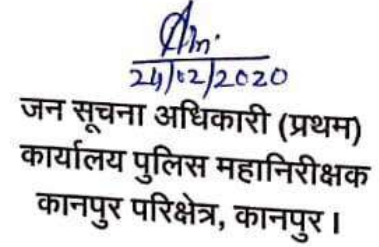 24/02/2020
जन सूचना अधिकारी (प्रथम)
कार्यालय पुलिस महानिरीक्षक
कानपुर परिक्षेत्र, कानपुर।